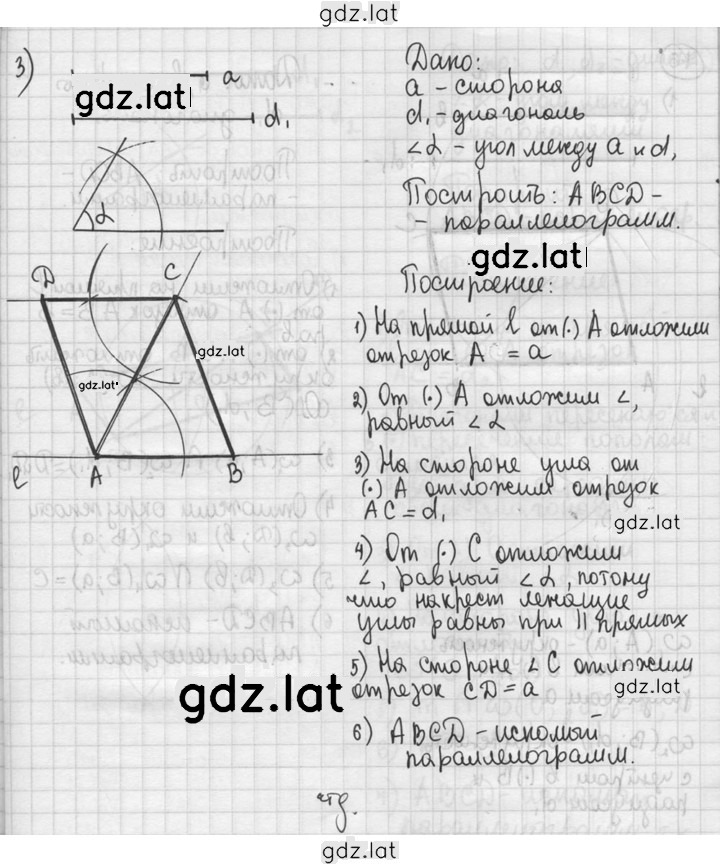 gdz.lat
3)
a
gdz.lat
d₁
∠
Дано:
a - сторона
d₁ - диагональ
∠α - угол между a и d₁
Построить: ABCD -
- параллелограмм.
gdz.lat
Построение:
D C
gdz.lat
gdz.lat
ℓ A B
1) На прямой ℓ от (·) A отложим
отрезок AC = a
2) От (·) A отложим ∠,
равный ∠α
3) На стороне угла от
(·) A отложим отрезок
AC = d₁
gdz.lat
4) От (·) C отложим
∠, равный ∠α, потому
что накрест лежащие
углы равны при || прямых
5) На стороне ∠C отложим
отрезок CD = a
gdz.lat
gdz.lat
6) ABCD - искомый
параллелограмм.
чтд.
gdz.lat